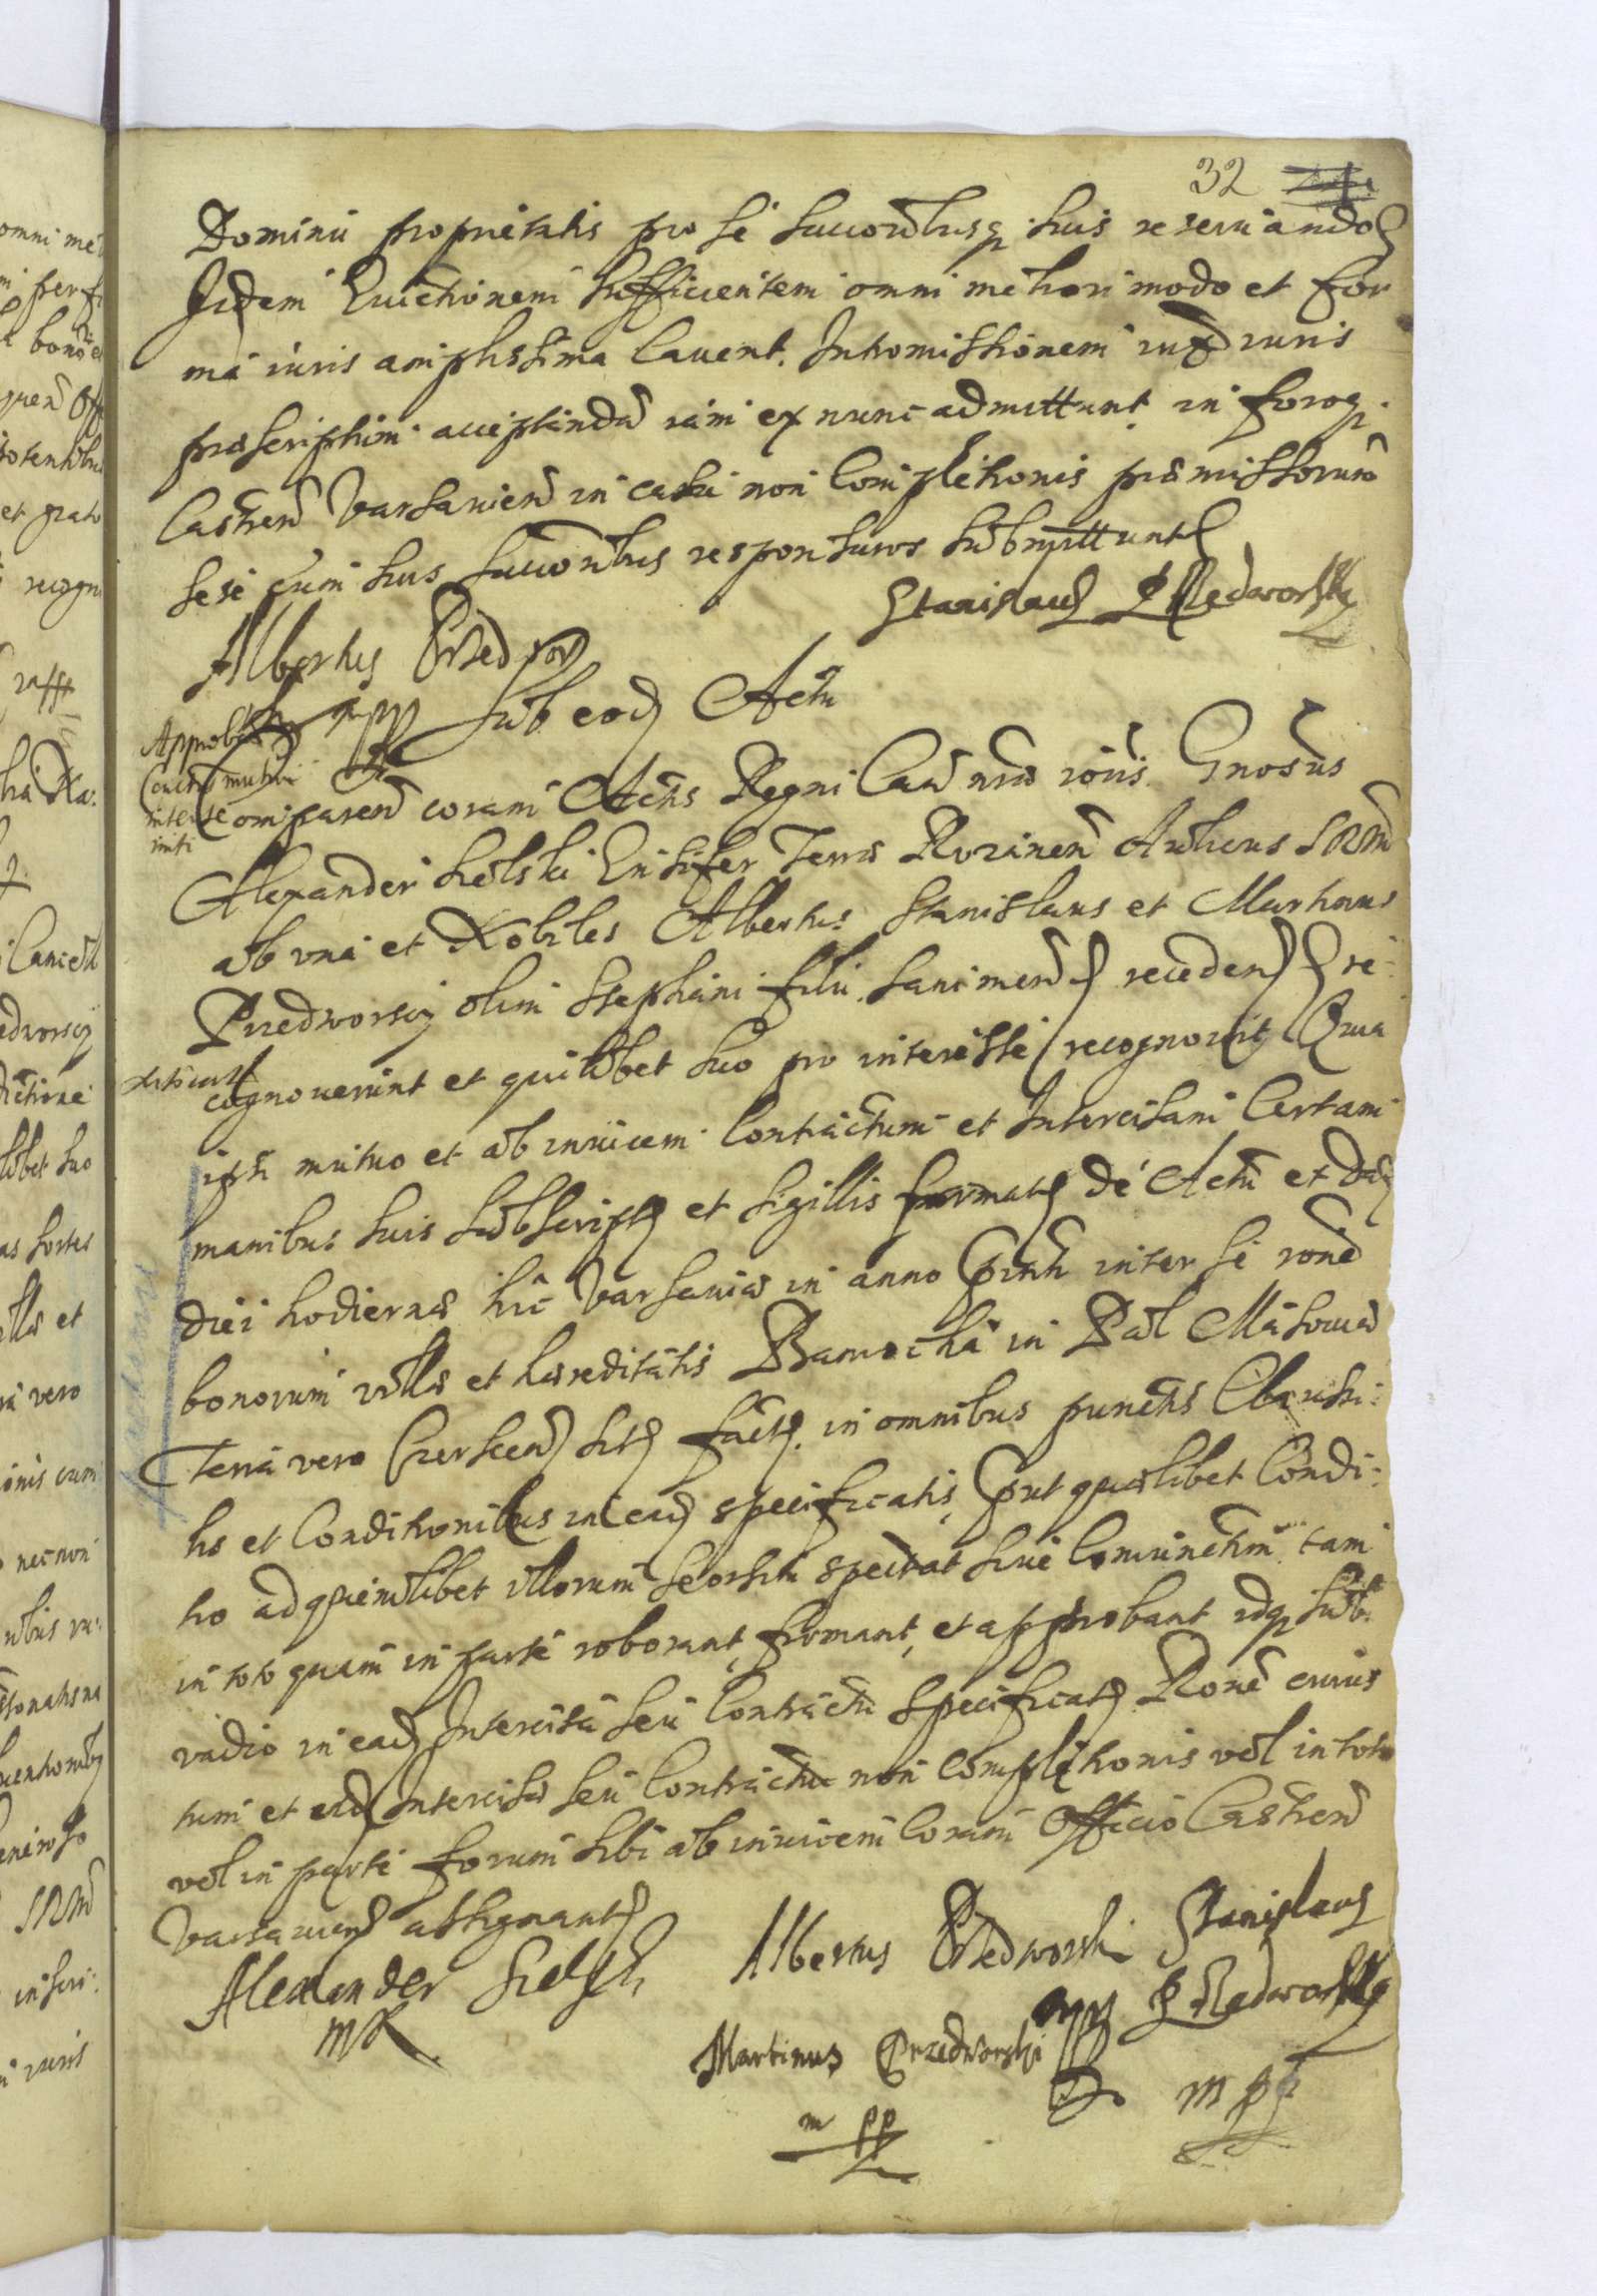 32
Dominii proprietatis pro se successoribusq suis reservando
Iidem Evictionem sufficientem omni meliori modo et for
ma iuris amplissima Cavent. Intromissionem iuxta iuris
praescriptum acceptandam iam ex nunc admittunt in foroq.
Castren Varsavien in casu non Completionis praemissorum
sese cum suis successoribus responsuros submittunt
Stanislaus Przedworsky
Albertus Przedwor
Sub eod Actu
Approb
Contractus mutui
inter se
initi
Comparen coram Actis Regni Can nris Gnosus
Alexander Sielski Ensifer Terrae Rozanen Aulicus SRM
ab una et Nobiles Albertus Stanislaus et Martinus
Przedworscy olim Stephani filii sani men receden re-
cognoverunt et quilibet suo pro interesse recognovit Quia
ipsi mutuo et ab invicem Contractum et Intercisam Certam
manibus suis subscript et sigillis firmat de Actu et Dat
diei hodiernae hic Varsaviae in anno pnti inter se rone
bonorum villae et haereditatis Bamocha in Pal Masoviae
Terra vero Czerscen sit fact in omnibus punctis Clausu-
lis et Conditionibus in ead specificatis, put quaelibet Condi-
tio ad quemlibet illorum seorsim spectat sive Coniunctim tam
in toto quam in parte roborant, firmant, et approbant idq sub
vadio in ead Intercisa seu Contractu specificat Rone cuius
tum et eiusd Intercisae seu Contractu non Completionis vel in toto
vel in parte forum sibi ab invicem Coram Officio Castren
Varsavien assignant
Alexander Sielski
Albertus Przedworski
Stanislaus
Przedworsky
mp
Martinus Przedworski
m pp
m pp